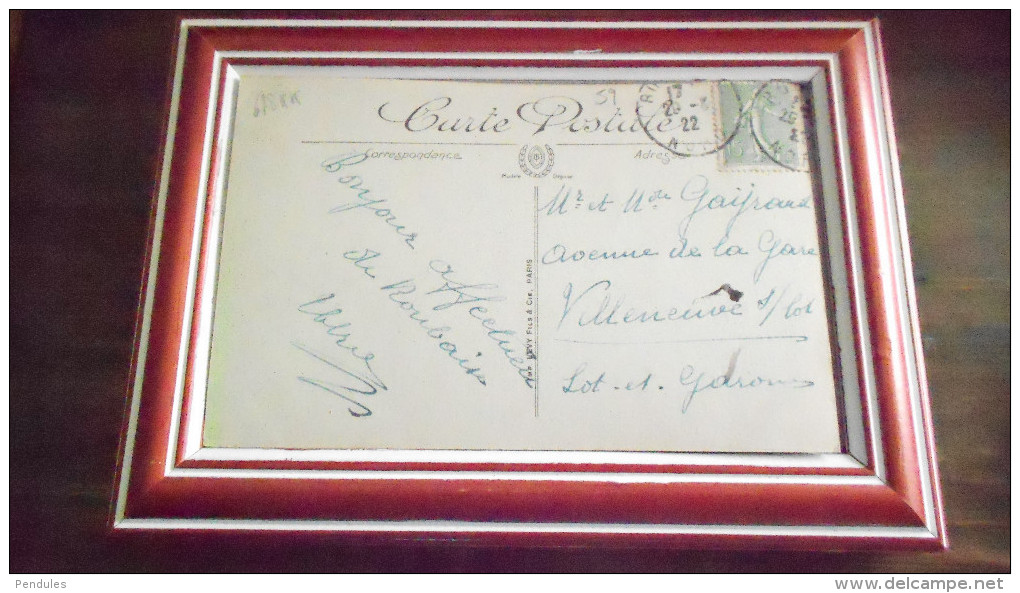 59
Carte Postale
Correspondance
Adresse
17
26 -
22
NO
Bonjour affectueux
de Roubaix
Mr et Mde Gaijrand
Avenue de la Gare
Villeneuve s/Lot
Lot-et-Garonne
IMP LEVY FILS & Cie, PARIS
Pendules
www.delcampe.net